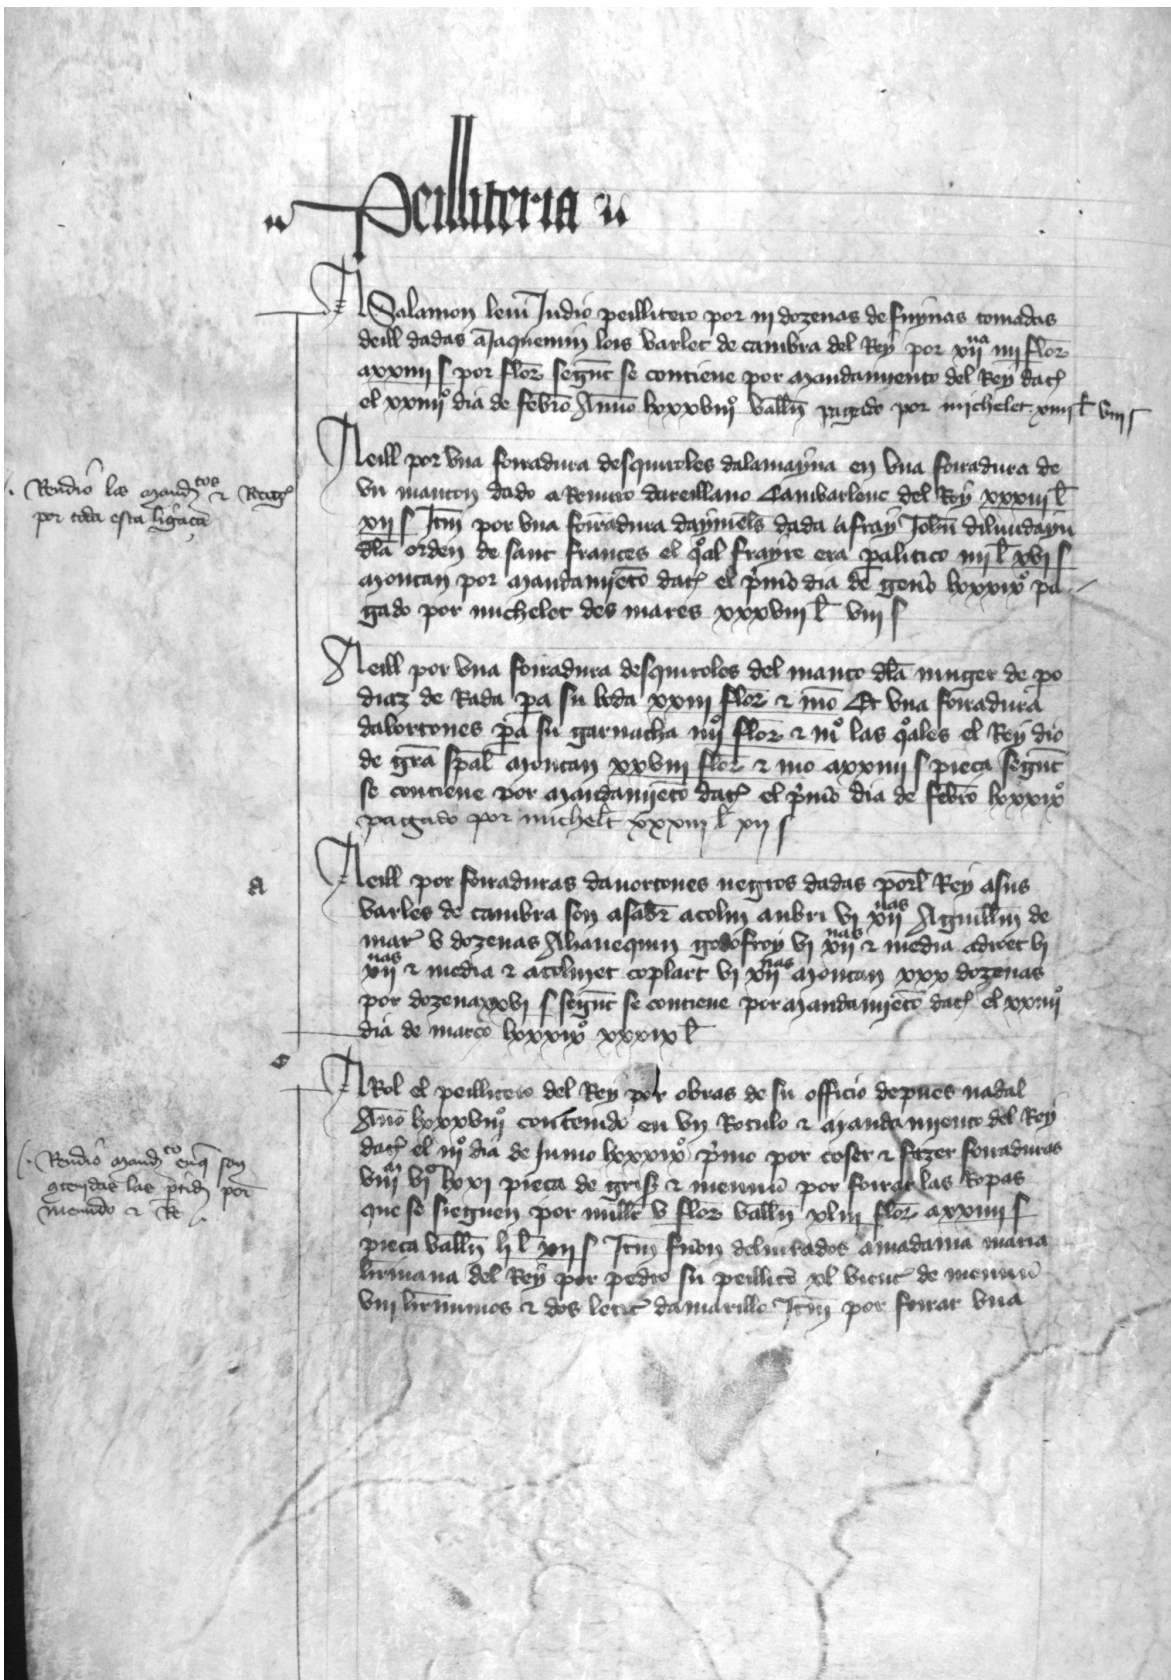 Peilliteria
A Salamon leui Judio peillitero por iii dozenas de fuynas tomadas
deill dadas a Jaquemin lois varlet de cambra del Rey por xii^na iiii flor
a xxiiii s por flor segunt se contiene por mandamiento del Rey dat
el xxiiii° dia de febro Anno lxxxviii° vallen pagado por michelet xiiii l viii s
A eill por vna forradura desquiroles dalamayna en vna forradura de
vn manton dado a Remiro dareillano Cambarlenc del Rey xxxiii l
xii s Item por vna forradura dayniels dada a fray Johan
dla orden de sant frances el qoal frayre era palitico iiii l xvi s
montan por mandamiento dat el primo dia de geno lxxxix° pa
gado por michelet des mares xxxviii l viii s
A eill por vna forradura desquiroles del manto dla muger de po
diaz de Rada pa su boda xxiii flor & mo Et vna forradura
dabortones pa su garnacha iiii° flor & m° las qoales el Rey dio
de gra spal montan xxviii flor & mo a xxiiii s pieca segunt
se contiene por mandamiento dat el primo dia de febro lxxxix°
pagado por michelet xxxiii l xii s
A eill por forraduras dauortones negros dadas porl Rey a sus
varles de cambra son asaber a colin aubri vi xii^nas A guillem de
mar v dozenas A hanequin godofroy vi xii^nas & media a droet vi
xii^nas & media & a colinet coplart vi xii^nas montan xxx dozenas
por dozena xxvi s segunt se contiene por mandamiento dat el xxiiii°
dia de março lxxxix° xxxix l
A Rol el peillitero del Rey por obras de su officio depues nadal
Ano lxxxviii° contenido en vn Rotulo & mandamiento del Rey
dat el iii° dia de Junio lxxxix° primo por coser & fazer forraduras
viii^m vi^c lxxi pieca de gris & menuu por forrar las Ropas
que se sieguen por miller v flor vallen xliii flor a xxiiii s
pieca vallen li l xii s Item fuon deliurados a madama maria
hrmana del Rey por pedro su peillite xl vient de menuu
viii hrminnos & dos letic damarillo Item por forrar vna
Rendio los mand^tos & Recog
por toda esta ligaca
a
c
Rendio mand^to enq son
contenidas las ptid por
menudo & Re